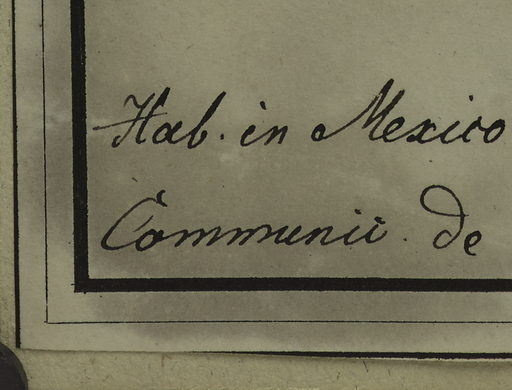 Hab. in Mexico
Communii. de